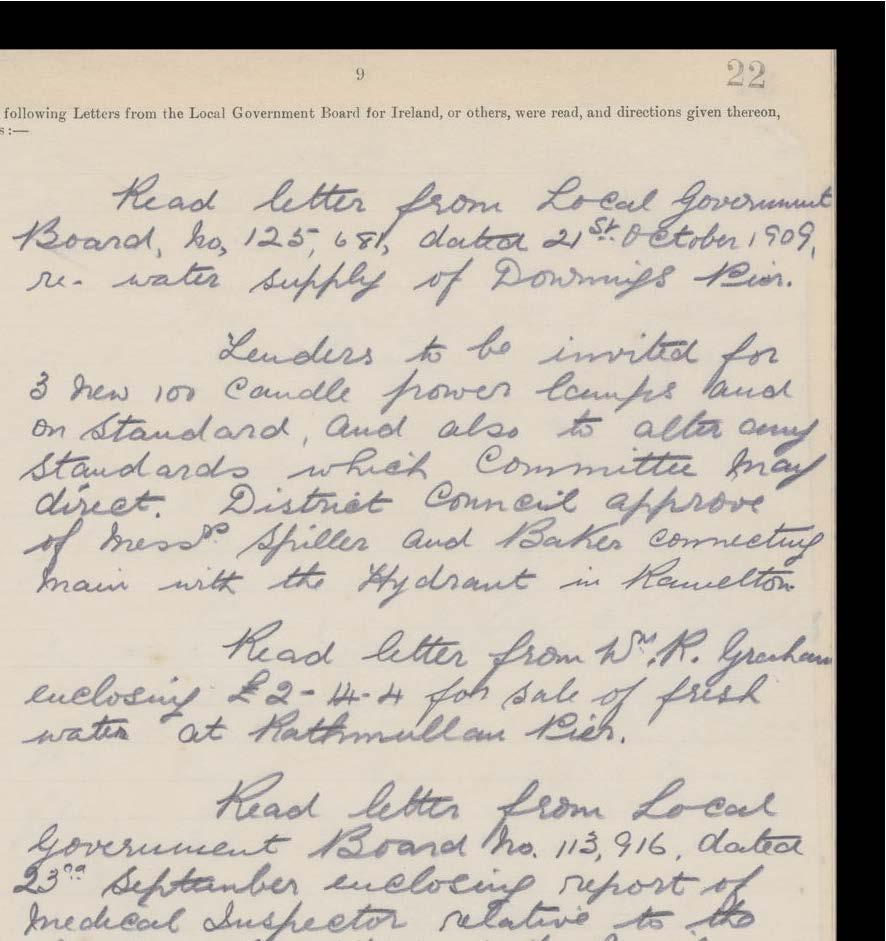 9
22
following Letters from the Local Government Board for Ireland, or others, were read, and directions given thereon,
s :—
Read letter from Local Government
Board, No, 125,681, dated 21st October 1909,
re- water supply of Downings Pier.
Tenders to be invited for
3 new 100 Candle power lamps and
on Standard, and also to alter any
Standards which Committee may
direct. District Council approve
of Messrs Spiller and Baker connecting
main with the Hydrant in Ramelton
Read letter from Wm. R. Graham
enclosing £2-14-4 for sale of fresh
water at Rathmullan Pier.
Read letter from Local
Government Board No. 113,916, dated
23rd September enclosing report of
Medical Inspector relative to the